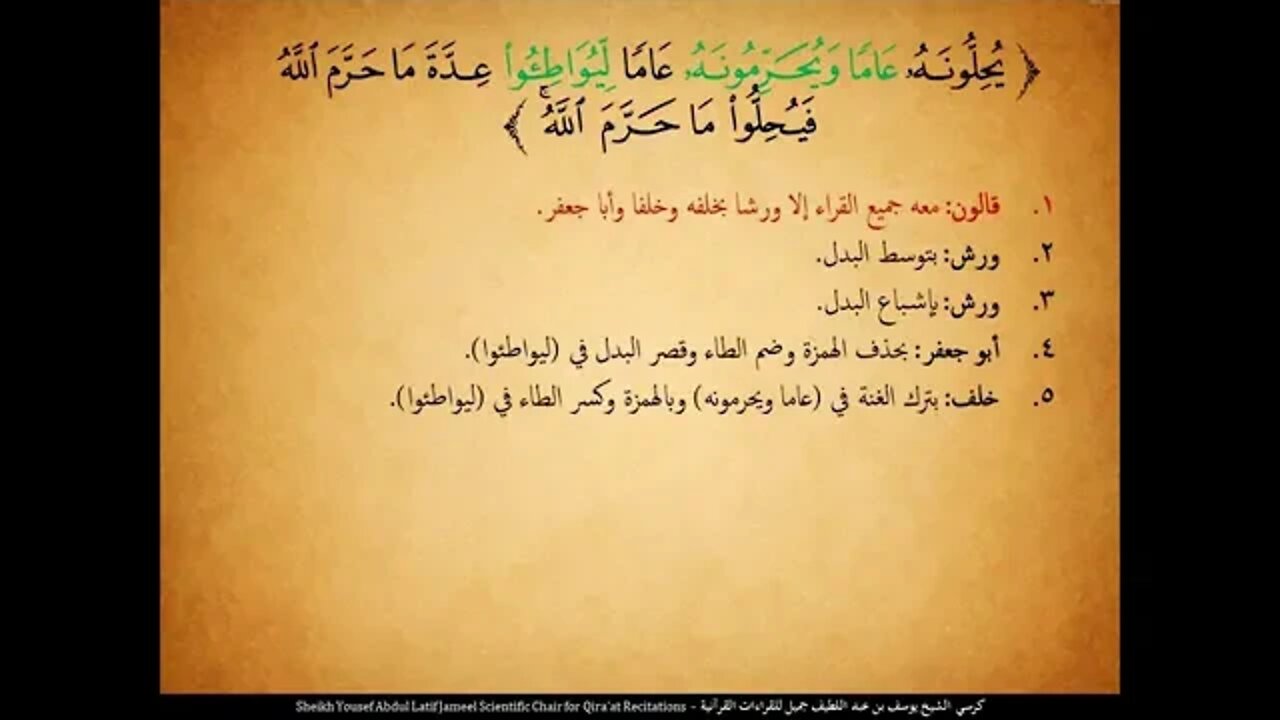 ﴿ يُحِلُّونَهُۥ عَامًا وَيُحَرِّمُونَهُۥ عَامًا لِّيُوَاطِـُٔوا۟ عِدَّةَ مَا حَرَّمَ ٱللَّهُ
فَيُحِلُّوا۟ مَا حَرَّمَ ٱللَّهُ ۚ ﴾
١. قالون: معه جميع القراء إلا ورشا بخلفه وخلفا وأبا جعفر.
٢. ورش: بتوسط البدل.
٣. ورش: بإشباع البدل.
٤. أبو جعفر: بحذف الهمزة وضم الطاء وقصر البدل في (ليواطئوا).
٥. خلف: بترك الغنة في (عاما ويحرمونه) وبالهمزة وكسر الطاء في (ليواطئوا).
Sheikh Yousef Abdul Latif Jameel Scientific Chair for Qira'at Recitations - كرسي الشيخ يوسف بن عبد اللطيف جميل للقراءات القرآنية